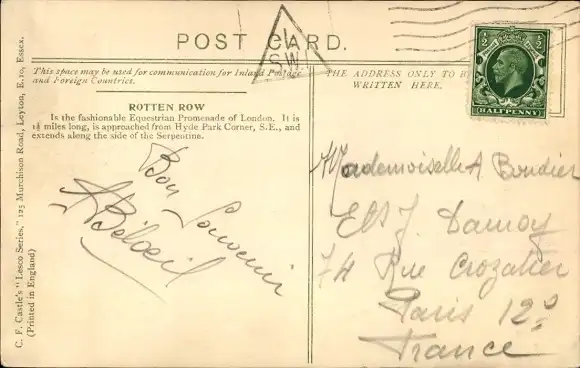 POST CARD.
1
S.W.
½ ½
HALFPENNY
This space may be used for communication for Inland Postage
and Foreign Countries.
THE ADDRESS ONLY TO B
WRITTEN HERE.
ROTTEN ROW
Is the fashionable Equestrian Promenade of London. It is
1½ miles long, is approached from Hyde Park Corner, S.E., and
extends along the side of the Serpentine.
Bon Souvenir
ABéloeil
Mademoiselle A Boudier
Ets J. Damoy
74 Rue Crozatier
Paris 12e
France
C. F. Castle's "Lesco Series," 125 Murchison Road, Leyton, E.10, Essex.
(Printed in England)